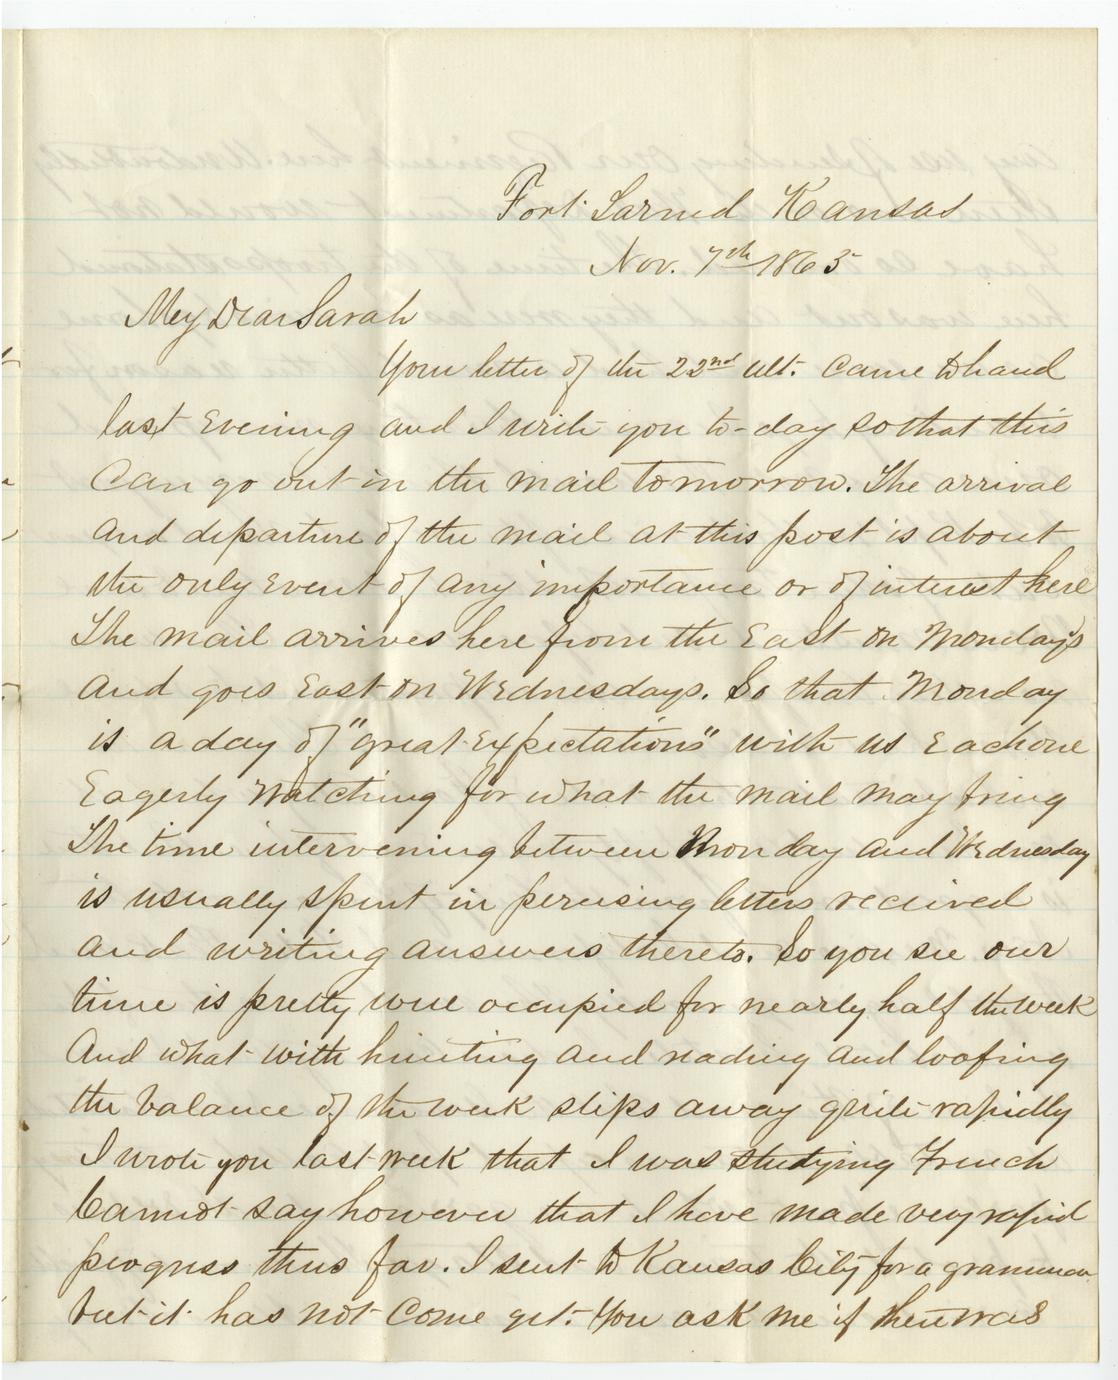 Fort Larned Kansas
Nov. 7th 1865
My Dear Sarah
Your letter of the 22nd ult. came to hand
last evening and I write you to-day so that this
can go out in the mail tomorrow. The arrival
and departure of the mail at this post is about
the only event of any importance or of interest here
The mail arrives here from the East on Mondays
and goes East on Wednesdays. So that Monday
is a day of "great expectations" with us each one
Eagerly watching for what the mail may bring
The time intervening between Monday and Wednesday
is usually spent in perusing letters received
and writing answers thereto. So you see our
time is pretty well occupied for nearly half the week
And what with hunting and reading and loafing
the balance of the week slips away quite rapidly
I wrote you last week that I was studying French
Cannot say however that I have made very rapid
progress thus far. I sent to Kansas City for a grammar
but it has not come yet. You ask me if there was